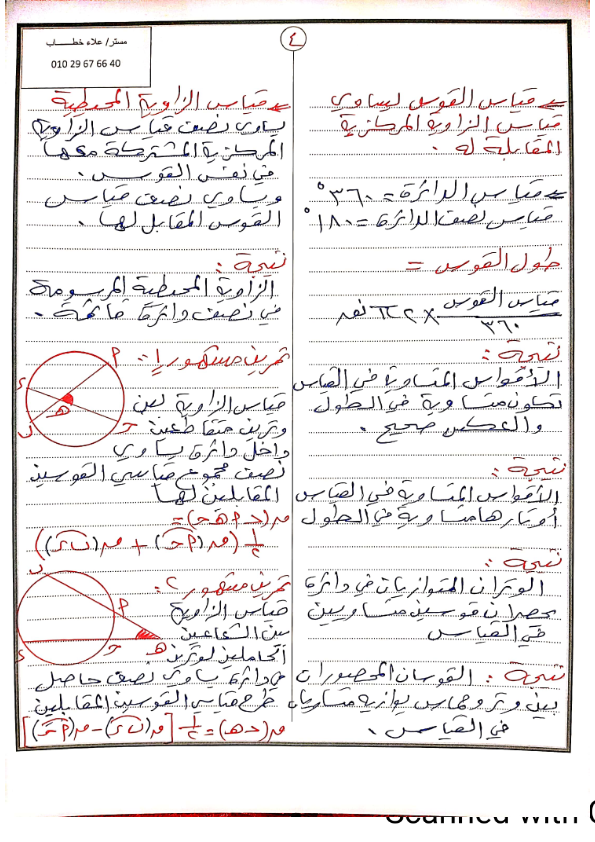 مستر/ علاء خطـــاب
010 29 67 66 40
٤
قياس القوس يساوي
قياس الزاوية المركزية
المقابلة له.
قياس الدائرة = ٣٦٠°
قياس نصف الدائرة = ١٨٠°
طول القوس =
قياس القوس / ٣٦٠ × ٢ π نق
نتيجة:
الأقواس المتساوية في القياس
تكون متساوية في الطول
والعكس صحيح.
نتيجة:
الأقواس المتساوية في القياس
أوتارها متساوية في الطول
نتيجة:
الوتران المتوازيان في دائرة
يحصران قوسين متساويين
في القياس
نتيجة: القوسان المحصوران
بين وتر ومماس يوازيه متساويان
في القياس.
قياس الزاوية المحيطية
يساوى نصف قياس الزاوية
المركزية المشتركة معها
في نفس القوس.
وساوى نصف قياس
القوس المقابل لها.
نتيجة:
الزاوية المحيطية المرسومة
في نصف دائرة قائمة.
تمرين مشهور ١:
قياس الزاوية بين
وترين متقاطعين
داخل دائرة يساوي
نصف مجموع قياسي القوسين
المقابلين لها
ق(د م هـ حـ) =
١/٢ (ق(م حـ) + ق(ب ء))
م
ء
هـ
ب
حـ
تمرين مشهور ٢:
قياس الزاوية
بين الشعاعين
الحاملين لوترين
في دائرة يساوى نصف حاصل
طرح قياس القوسين المقابلين
ق(د هـ) = ١/٢ [ق(ب ء) - ق(م حـ)]
ب
م
هـ
حـ
ء
Scanned with